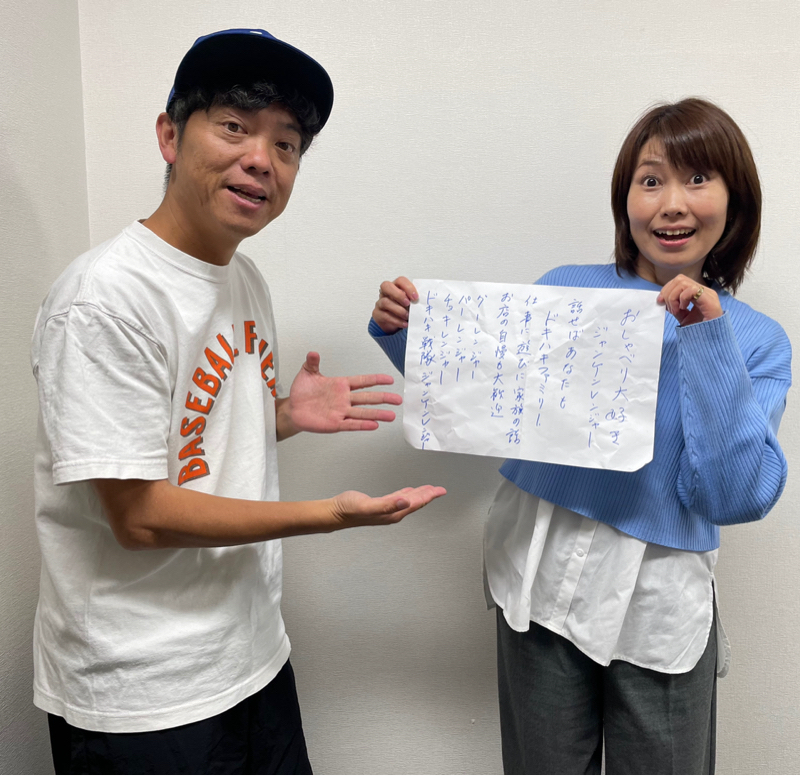 おしゃべり大好き
ジャンケンレンジャー
話せばあなたも
ドキハキファミリー
仕事に遊びに家族の話
お店の自慢も大歓迎
グーレンジャー
パーレンジャー
チョキレンジャー
ドキハキ戦隊ジャンケンレンジャー
BASEBALL